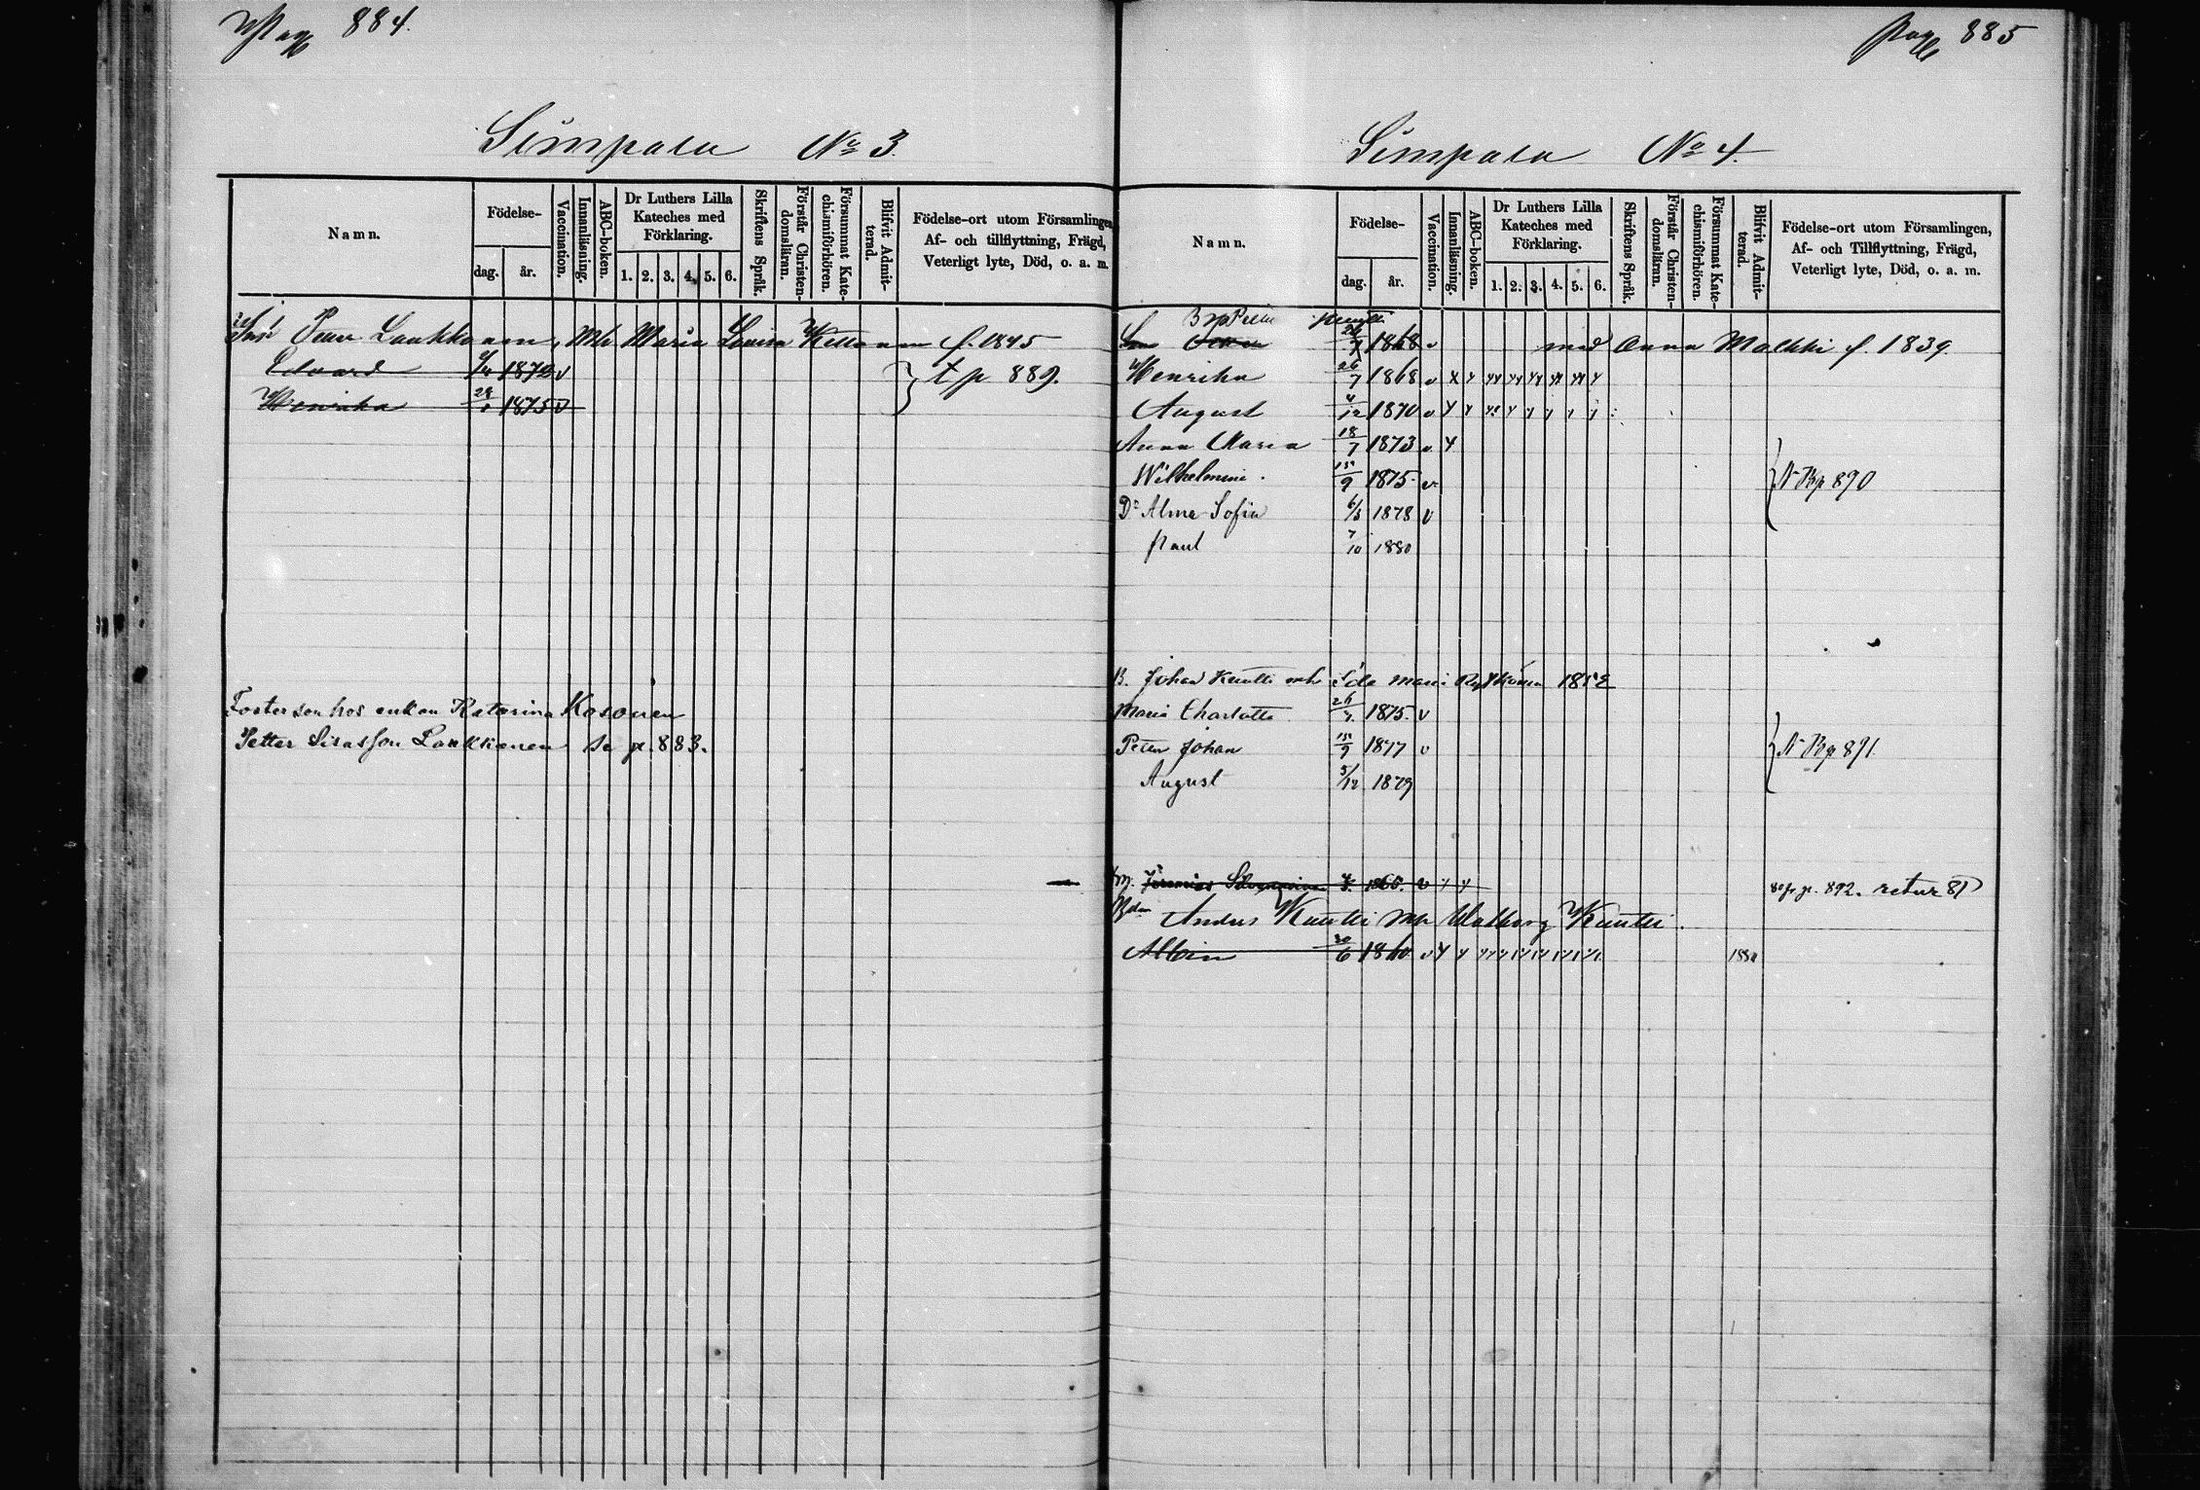 Pag 884.
Simpala No 3.
Namn.
Födelse-
dag.
år.
Vaccination.
Innanläsning.
ABC-boken.
Dr Luthers Lilla
Kateches med
Förklaring.
1. 2. 3. 4. 5. 6.
Skriftens Språk.
Förstår Christen-
domsläran.
Försummat Kate-
chismiförhören.
Blifvit Admit-
terad.
Födelse-ort utom Församlingen,
Af- och tillflyttning, Frägd,
Veterligt lyte, Död, o. a. m.
Petter Laukkanen, Mh Maria Lovisa f. 1845
Edvard 1872 v
Henrika 28 1875 v
t p 889.
Fosterson hos enkan Katarina Kosonen
Petter Laukkanen se p. 883.
Pag 885
Simpala No 4.
Namn.
Födelse-
dag.
år.
Vaccination.
Innanläsning.
ABC-boken.
Dr Luthers Lilla
Kateches med
Förklaring.
1. 2. 3. 4. 5. 6.
Skriftens Språk.
Förstår Christen-
domsläran.
Försummat Kate-
chismiförhören.
Blifvit Admit-
terad.
Födelse-ort utom Församlingen,
Af- och Tillflyttning, Frägd,
Veterligt lyte, Död, o. a. m.
26/7 1868 v med Anna Malkki f. 1839.
Henrika 26/7 1868 v
August 4/12 1870 v
Anna Maria 18/7 1873 v
Wilhelmina 15/9 1875 v
Dr Alma Sofia 6/3 1878 v
Paul 7/10 1880
N Bp 890
B. Johan Kuutti mh Ida Maria 1852
Maria Charlotta 26/7 1875. v
Peter Johan 15/9 1877 v
August 5/12 1879
N Bp 891.
Jeremias 1865. v p. 892. retur 81
Anders Kuutti Mh Walborg Kuutti.
Albin 30/6 1860 v 1880